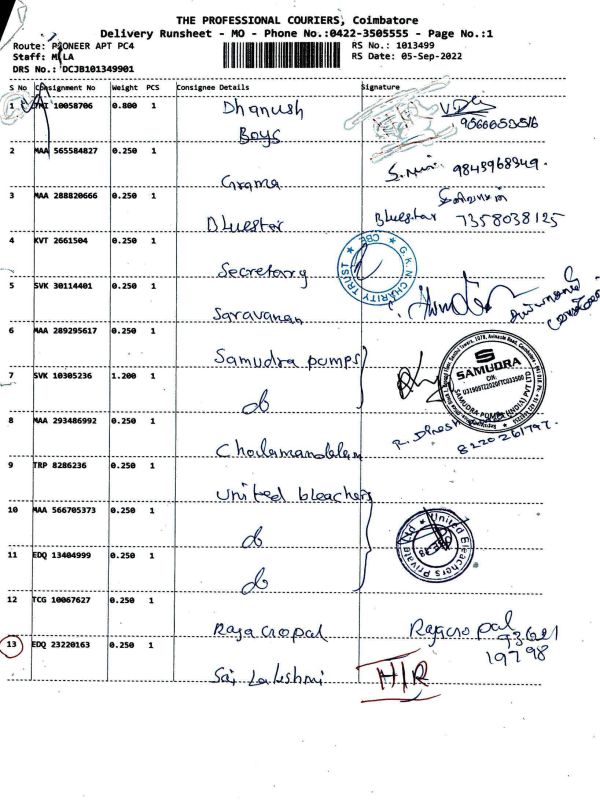 THE PROFESSIONAL COURIERS, Coimbatore
Delivery Runsheet - MO - Phone No.:0422-3505555 - Page No.:1
Route: PIONEER APT PC4
RS No.: 1013499
Staff: MILA
RS Date: 05-Sep-2022
DRS No.: DCJB101349901
S No Consignment No Weight PCS Consignee Details Signature
1 10058706 0.800 1 Dhanush
Boys
9566652516
2 MAA 565584827 0.250 1 Grama
9843968949.
3 MAA 288820666 0.250 1 Bluestar
Bluestar 7358038125
4 KVT 2661504 0.250 1 Secretary
G.K.N CHARITY TRUST ★ CBE ★
5 SVK 30114401 0.250 1 Saravanan
6 MAA 289295617 0.250 1 Samudra pumps
7 SVK 10305236 1.200 1 do
SAMUDRA
CIN:
U31909TZ2020FTC033500
SAMUDRA PUMPS (INDIA) PVT LTD
8 MAA 293486992 0.250 1 Cholamandalam
R. Dinesh
8220261797.
9 TRP 8286236 0.250 1 united bleachers
10 MAA 566705373 0.250 1 do
United Bleachers Private Ltd
11 EDQ 13404999 0.250 1 do
12 TCG 10067627 0.250 1 Raja Gopal
Raja Gopal
93621
19798
13 EDQ 23220163 0.250 1 Sai Lakshmi
H/R